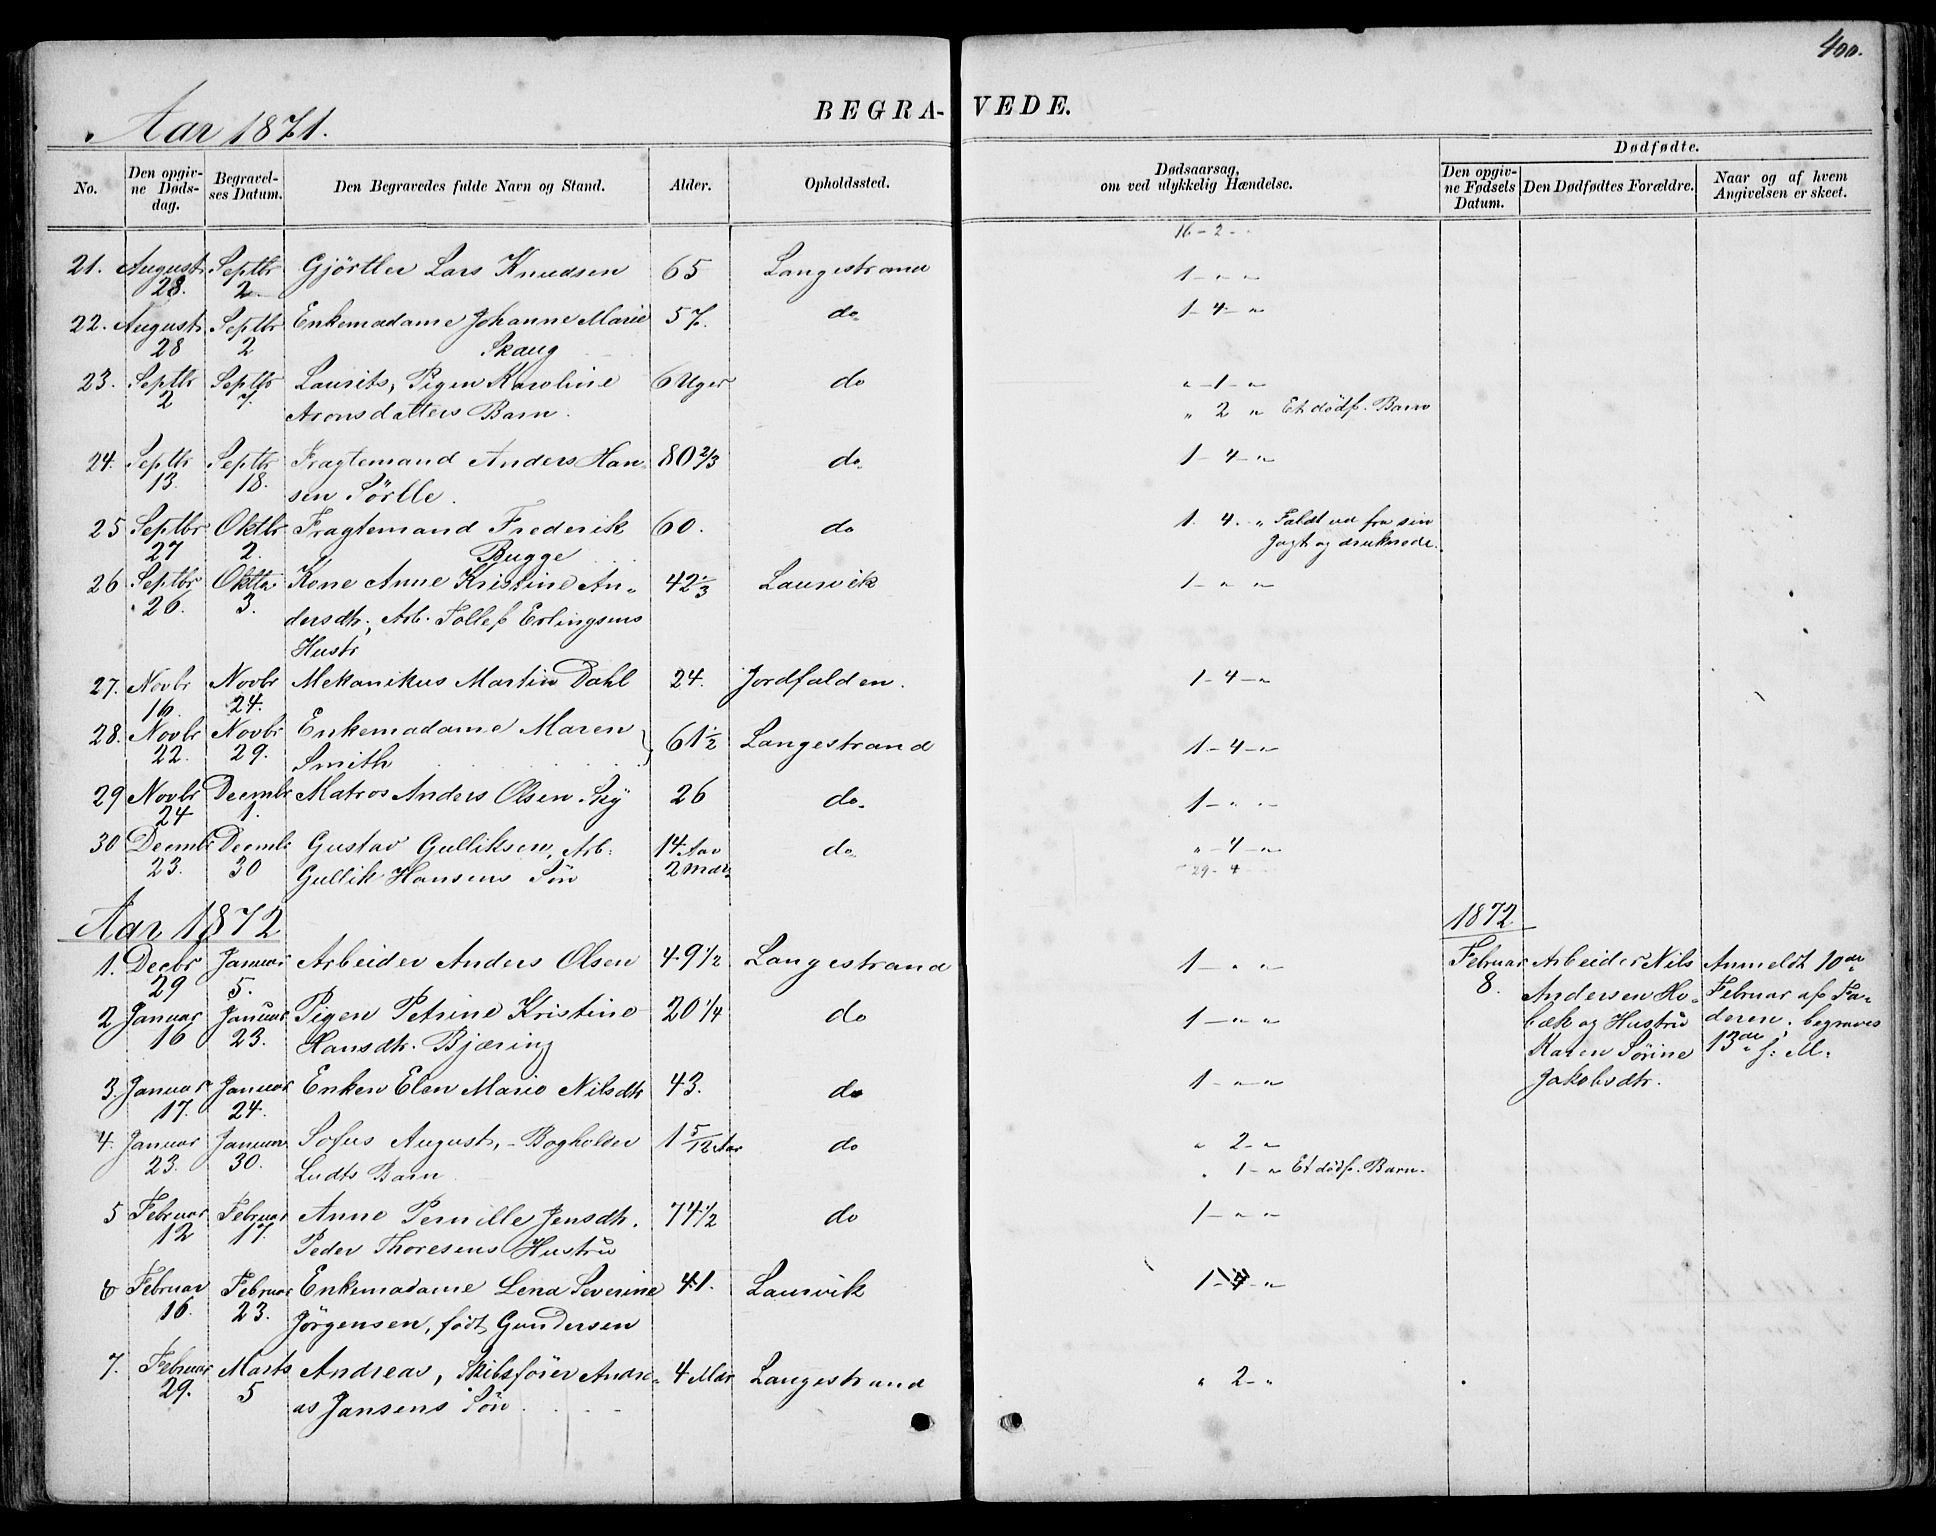 400.
Aar 1871.
BEGRAVEDE.
No.
Den opgivne Dødsdag.
Begravelses Datum.
Den Begravedes fulde Navn og Stand.
Alder.
Opholdssted.
Dødsaarsag, om ved ulykkelig Hændelse.
Dødfødte.
Den opgivne Fødsels Datum.
Den Dødfødtes Forældre.
Naar og af hvem Angivelsen er skeet.
16 - 2 - "
21. August Septbr Gjörtler Lars Knudsen 65 Langestrand 1 - " "
28. 2
22. August Septbr Enkemadame Johanne Marie 57. do 1 - 4 - "
28 2 Skaug
23. Septbr Septbr Laurits, Pigen Karoline 6 Uger do " - 1 - "
2 7. Aronsdatters Barn. " 2 " Et dödf. Barn
24. Septbr Septbr Fragtemand Anders Han- 80 2/3 do 1 - 4 - "
13. 18. sen Sörlle.
25 Septbr Oktbr Fragtemand Frederik 60. do 1. 4. " Faldt ud fra sin
27 2. Bugge Jagt og druknede.
26 Septbr Oktbr Kone Anne Kristine An- 42 1/3 Laurvik 1 - " "
26. 3. dersdtr., Arb. Tollef Erlingsens
Hustr
27. Novbr Novbr Mekanikus Martin Dahl 24. Jordfalden. 1 - 4 - "
16. 24.
28. Novbr Novbr Enkemadame Maren 61 1/2 Langestrand 1 - 4 - "
22. 29. Smith
29 Novbr Decmbr Matros Anders Olsen Sky 26 do 1 - " "
24 1.
30 Decmbr Decmbr Gustav Gulliksen, Arb. 14 Aar do " - 4 - "
23. 30 Gullik Hansens Sön 2 Mdr. 29 - 4
Aar 1872 1872
1. Decbr Januar Arbeider Anders Olsen 49 1/2 Langestrand 1 - " " Februar Arbeider Nils Anmeldt 10de
29 5. 8. Andersen Ho- Februar af Fa-
2 Januar Januar Pigen Petrine Kristine 20 1/4 do 1 - " " bæk og Hustru deren; begraves
16 23. Hansdtr. Bjæring Karen Sörine 13de s: M.
3. Januar Januar Enken Elen Marie Nilsdtr 43. do 1 - " " Jakobsdtr.
17. 24.
4. Januar Januar Sofus August, - Bogholder 1 5/12 Aar do " 2 - "
23. 30. Ludts Barn " 1 - " Et dödf. Barn.
5 Februar Februar Anne Pernille Jensdtr. 74 1/2 do 1 - " "
12 17. Peder Thoresens Hustru
6 Februar Februar Enkemadame Lena Severine 41. Laurvik 1 - 4 - "
16. 23. Jörgensen, födt Gundersen
7. Februar Marts Andreas, Skibsförer Andre- 4 Mdr Langestrand " 2 - "
29. 5 as Jansens Sön